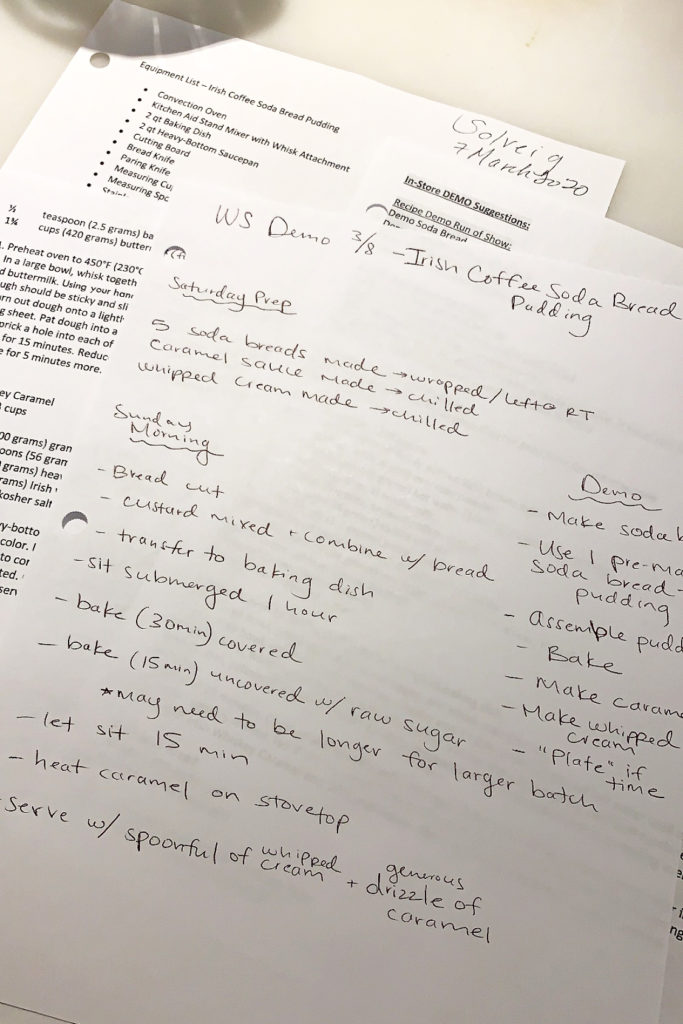 Equipment List – Irish Coffee Soda Bread Pudding
Convection Oven
Kitchen Aid Stand Mixer with Whisk Attachment
2 qt Baking Dish
2 qt Heavy-Bottom Saucepan
Cutting Board
Bread Knife
Paring Knife
Measuring Cu
Measuring Spo
Solveig
7 March 2020
In-Store DEMO Suggestions:
Recipe Demo Run of Show:
Demo Soda Bread
½ teaspoon (2.5 grams) ba
1¾ cups (420 grams) butter
. Preheat oven to 450°F (230°C
In a large bowl, whisk togeth
d buttermilk. Using your han
ugh should be sticky and sli
rn out dough onto a lightl
g sheet. Pat dough into a
prick a hole into each of
for 15 minutes. Reduc
e for 5 minutes more.
ey Caramel
cups
00 grams) gran
oons (56 gram
grams) hea
rams) Irish
kosher salt
vy-botto
color. I
to cor
ted.
sen
WS Demo 3/8 - Irish Coffee Soda Bread
Pudding
Saturday Prep
5 soda breads made → wrapped/left @ RT
caramel sauce made → chilled
whipped cream made → chilled
Sunday
Morning
- Bread cut
- custard mixed + combine w/ bread
- transfer to baking dish
- sit submerged 1 hour
- bake (30min) covered
- bake (15min) uncovered w/ raw sugar
*may need to be longer for larger batch
- let sit 15 min
- heat caramel on stovetop
- serve w/ spoonful of whipped cream + generous drizzle of caramel
Demo
- Make soda b
- Use 1 pre-ma
soda bread -
pudding
- assemble pudd
- Bake
- Make carame
- Make whipped
cream
- "Plate" if
time